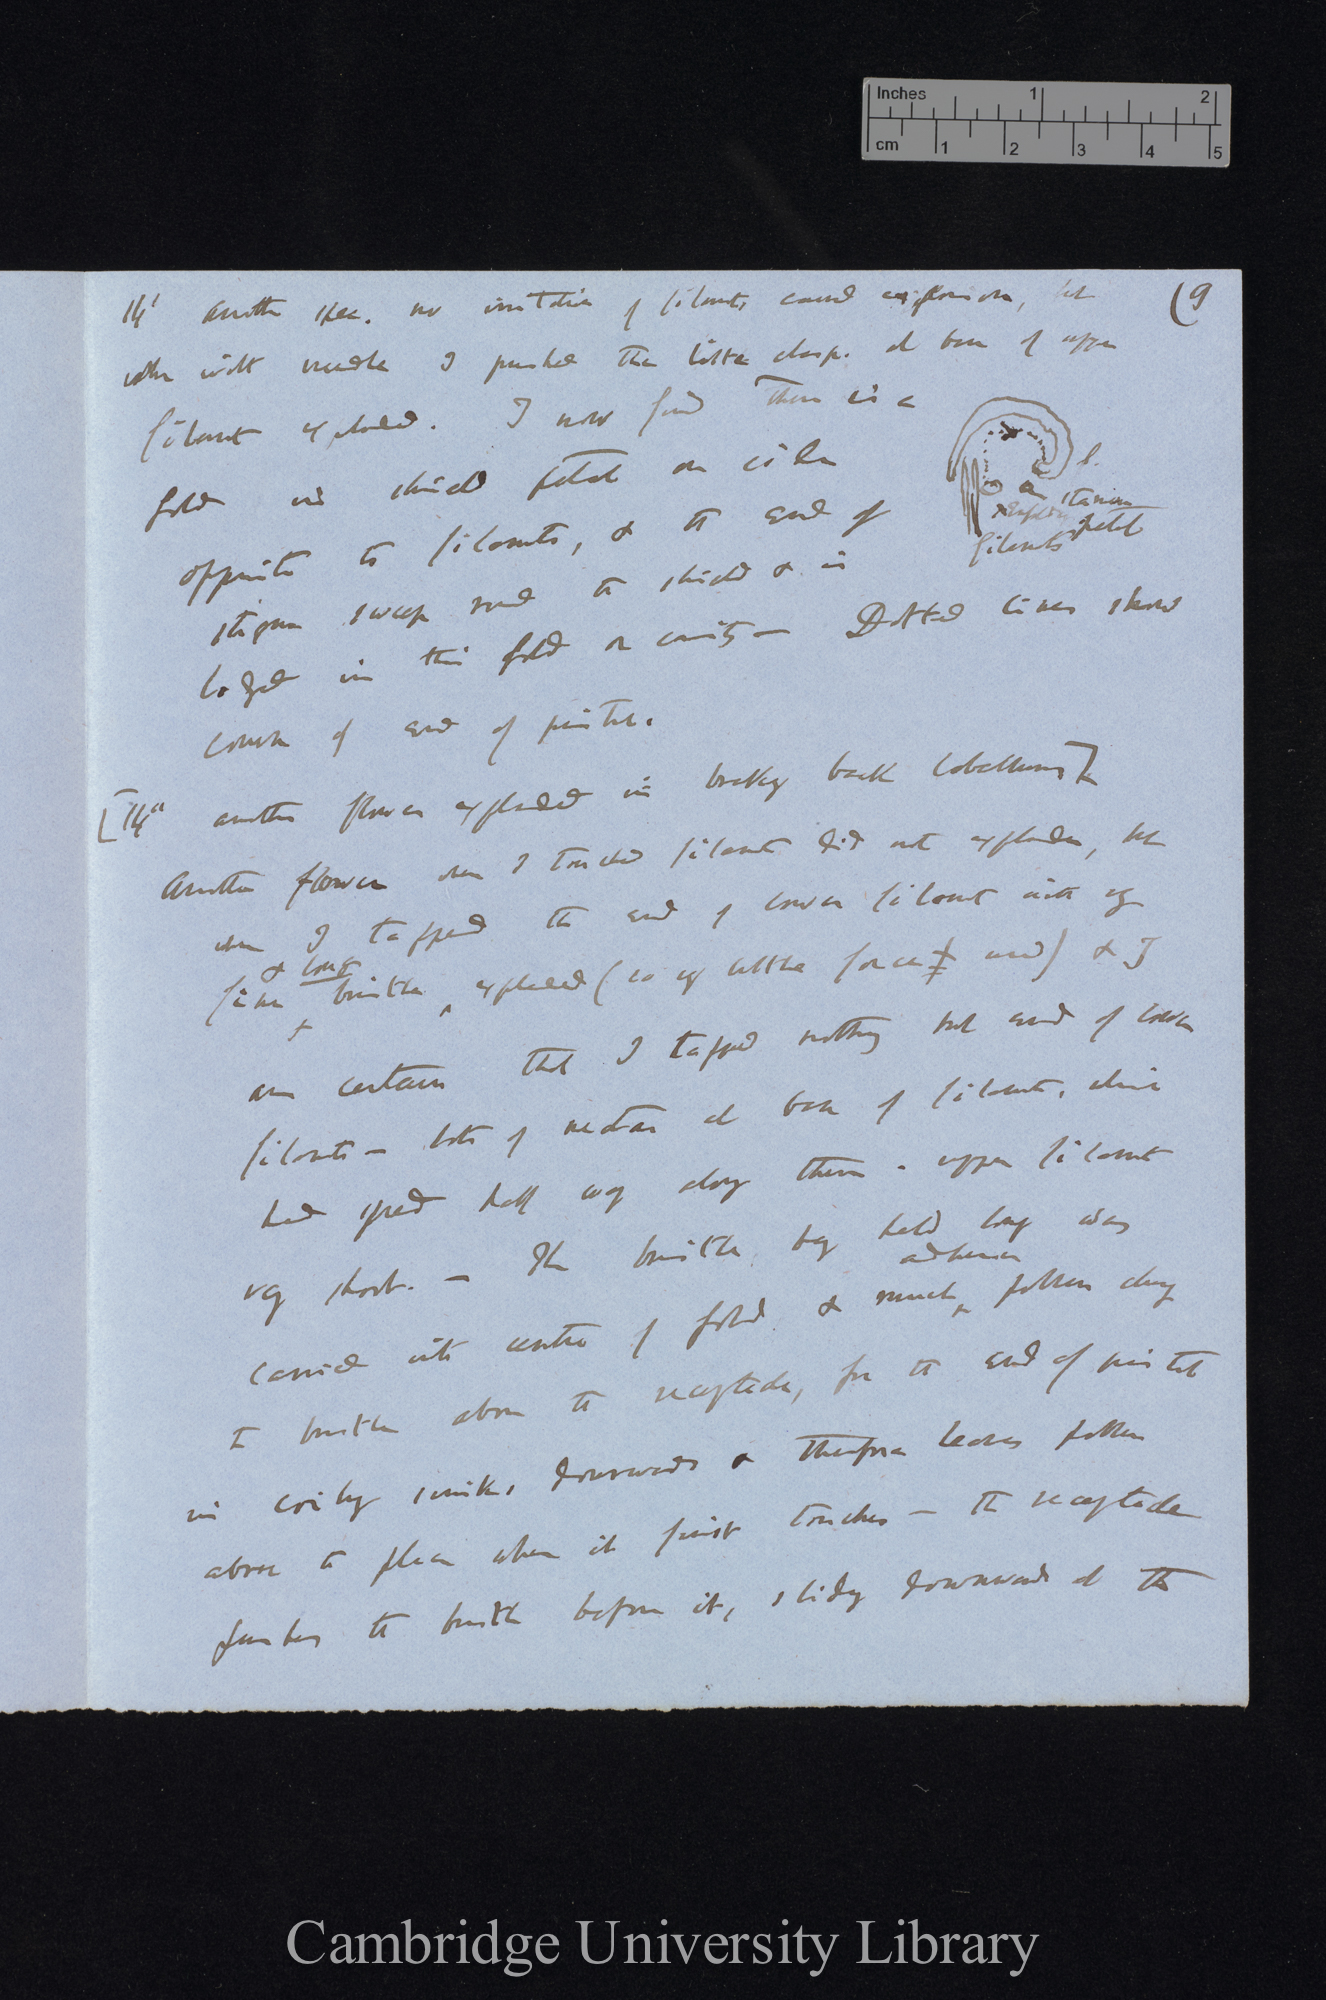 Inches 1 2
cm 1 2 3 4 5
(9
14' Another spec. no irritation of filaments caused explosion, but
when with needle I pushed the little clasp. at base of upper
filament exploded. I now find there is a
fold in shield petal on side
opposite to filaments, & the end of
stigma sweep round the shield & is
lodged in this fold or cavity — Dotted lines show
course of end of pistil.
l.
stamens
petal
filaments
[14" another flower exploded in breaking back labellum]
Another flower when I touched filament did not explode, but
when I tapped the end of lower filament with very
fine & long bristle, exploded (so very little force used) & I
am certain that I tapped nothing but end of lower
filaments — lots of nectar at base of filaments, which
had spread half way along them. upper filament
very short. — The bristle being held long was
carried into centre of fold & much adherent pollen clung
to bristle above the receptacle, for the end of pistil
in coiling sinks downwards & therefore leaves pollen
above the place when it first touches — the receptacle
pushes the bristle before it, sliding downwards at the
Cambridge University Library